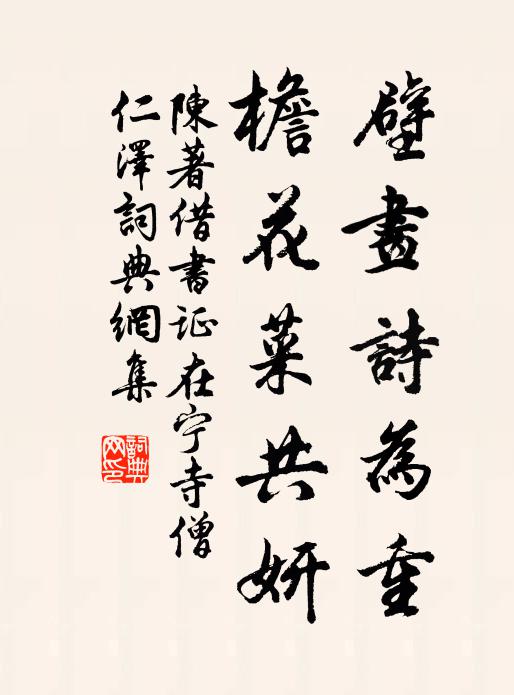 壁畫詩為重
檐花菜共妍
陳著借書証在宁寺僧
仁澤詞典網集
詞典网印